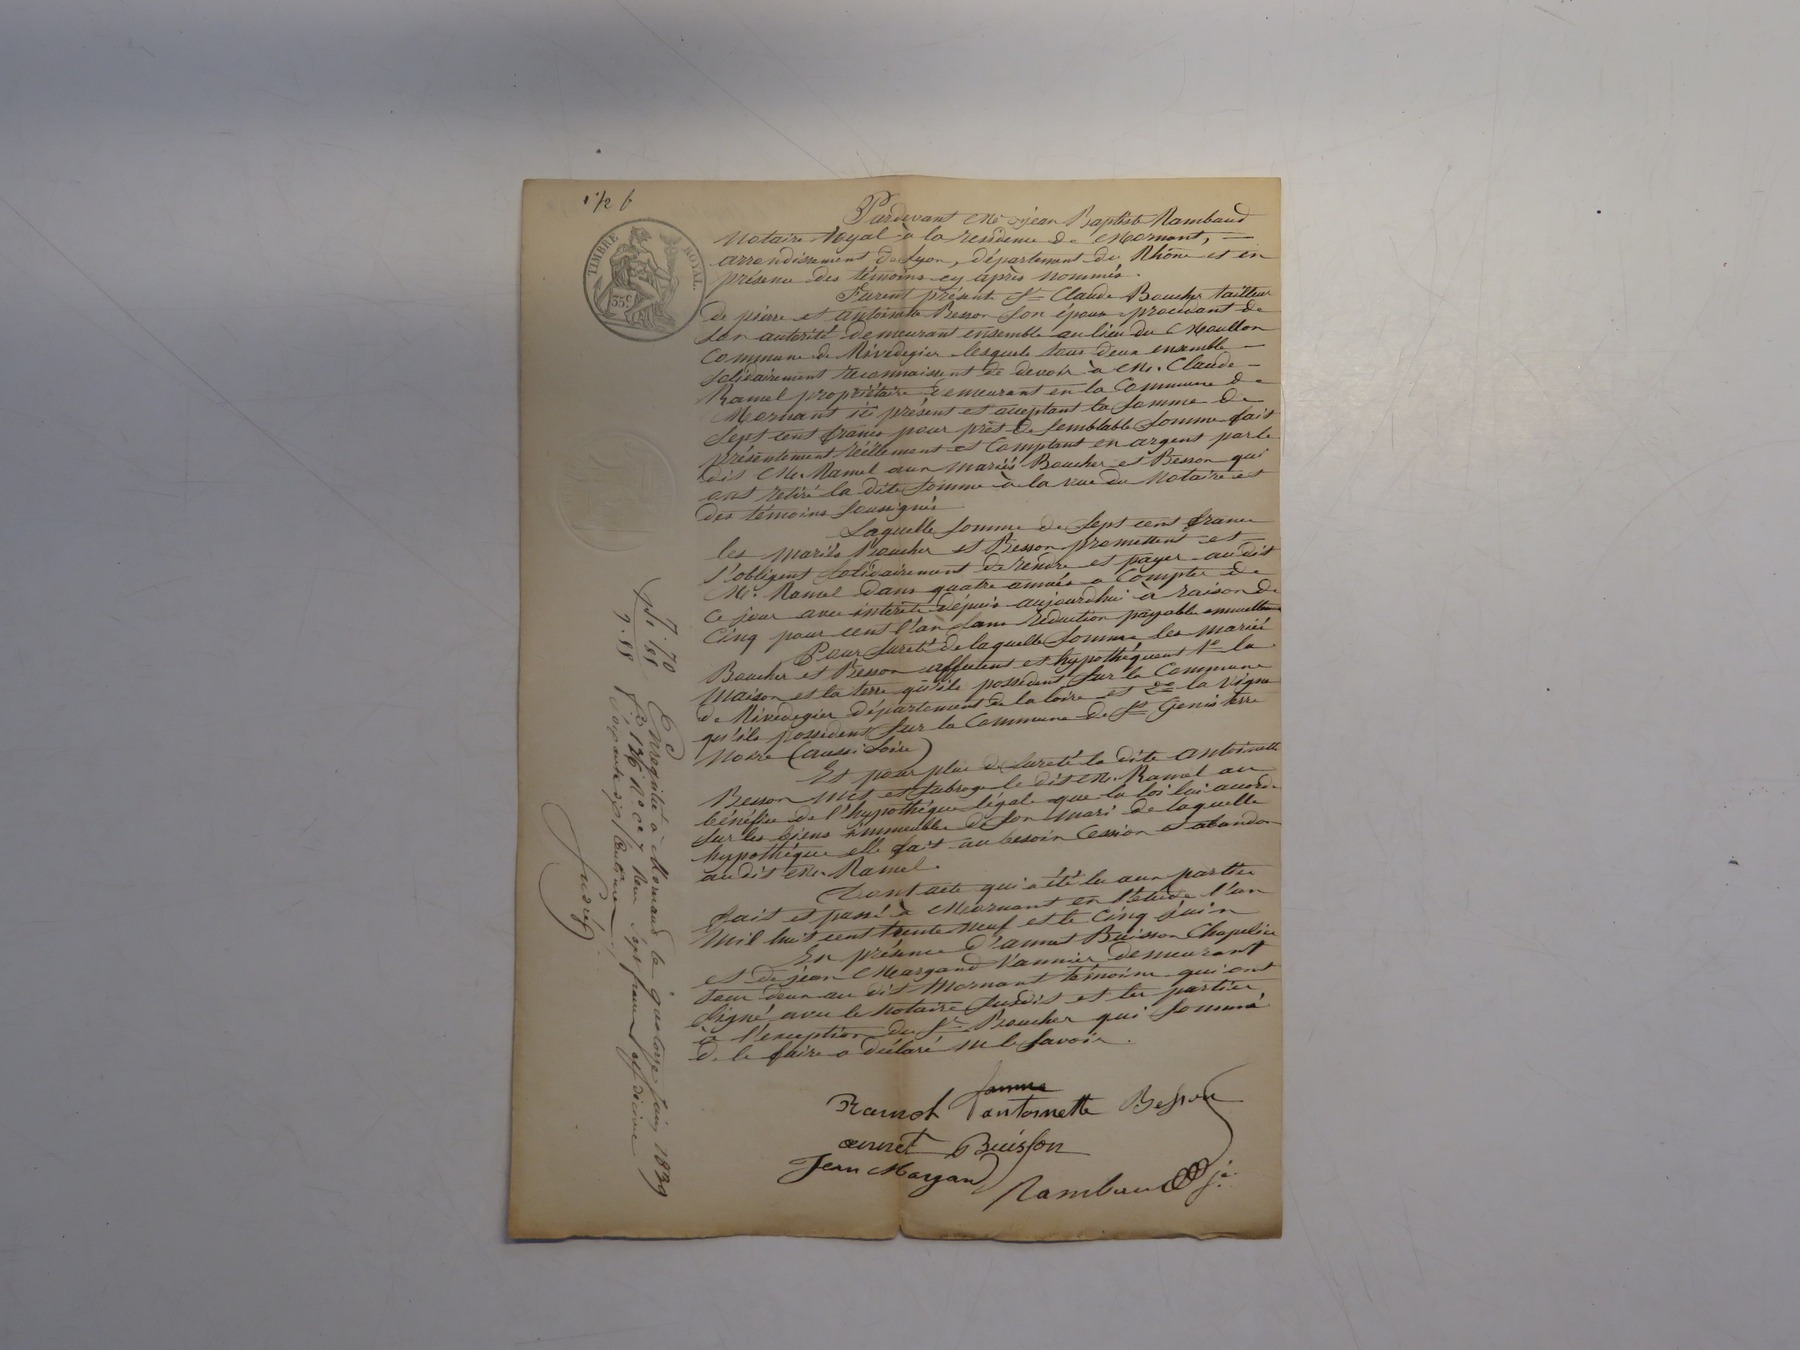 1/2 f
TIMBRE ROYAL.
35 c
Pardevant Me jean Baptiste Rambaud
Notaire Royal à la residence de Mornant, —
arrondissement de Lyon, département du Rhône et en
présence des témoins cy après nommés.
Furent présent Sr Claude Boucher tailleur
de pierre et antoinette Besson son épouse procédant de
son autorité demeurant ensemble au lieu du Moullon
Commune de Rivedegier lesquels tous deux ensemble —
solidairement reconnaissent de devoir à Mr. Claude —
Ramel propriétaire demeurant en la Commune de
Mornant ici présent et acceptant la somme de
Sept cent francs pour prêt de semblable somme fait
présentement réellement et Comptant en argent par le
dit Mr. Ramel aux mariés Boucher et Besson qui
ont retiré la dite somme à la vue du Notaire et
des témoins soussignés
Laquelle somme de Sept cent francs
les mariés Boucher et Besson promettent et
s'obligent solidairement de rendre et payer au dit
Mr. Ramel dans quatre années a Compter de
ce jour avec intérêts depuis aujourdhui à raison de
Cinq pour cent l'an sans réduction payable annuellement
Pour sureté de laquelle somme les mariés
Boucher et Besson affectent et hypothéquent 1o la
maison et la terre qu'ils possedent sur la Commune
de Rivedegier département de la loire et 2o la vigne
qu'ils possedent sur la Commune de St Genis terre
noire (aussi Loire)
Et pour plus de sureté la dite antoinette
Besson met et subroge le dit Mr. Ramel au
bénéfice de l'hypothéque légale que la loi lui accorde
sur les biens immeubles de son mari de laquelle
hypothéque elle fait au besoin Cession et abandon
au dit Mr. Ramel.
Dont acte qui a été lu aux parties
fait et passé à Mornant en l'étude l'an
mil huit cent trente neuf et le Cinq juin
En présence d'annet Buisson Chapelier
et de jean Margand Vannier demeurant
tous deux au dit Mornant témoins qui ont
signé avec le notaire susdit et les parties
à l'exception du Sr. Boucher qui sommé
de le faire a déclaré ne le savoir.
Ramel antoinette Besson
annet Buisson
Jean Margand Rambaud
7. 70
9. 88
Enregistré à Mornand le quatorze juin 1839
fo 126 Ro ce 7 Reçu sept francs